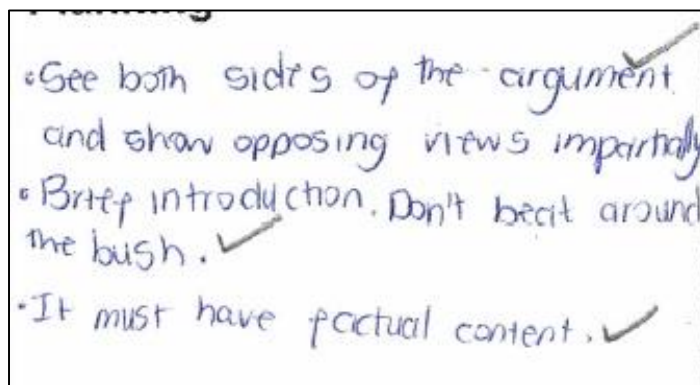 • See both sides of the argument
and show opposing views impartially
• Brief introduction. Don't beat around
the bush.
• It must have factual content.